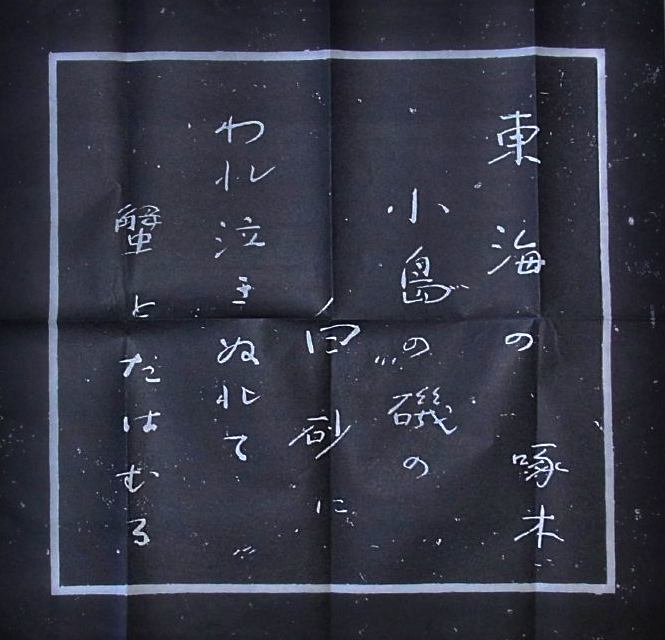 東海の
啄木
小島の磯の
白砂に
われ泣きぬれて
蟹とたはむる